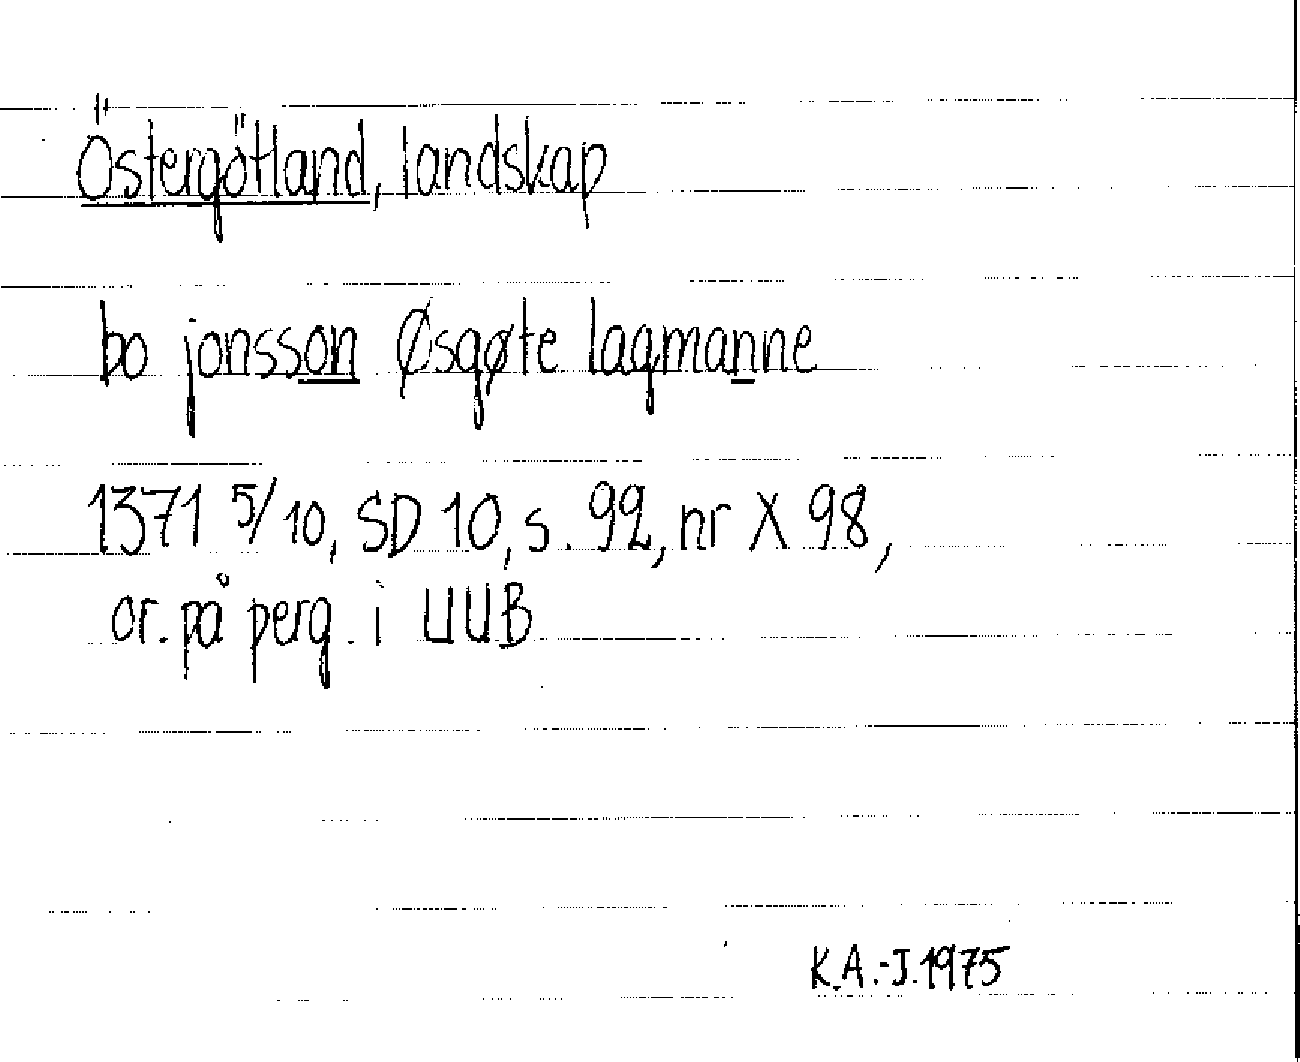 Östergötland, landskap
bo jonsson Øsgøte lagmanne
1371 5/10, SD 10, s. 92, nr X 98,
or. på perg. i UUB
K.A.-J. 1975